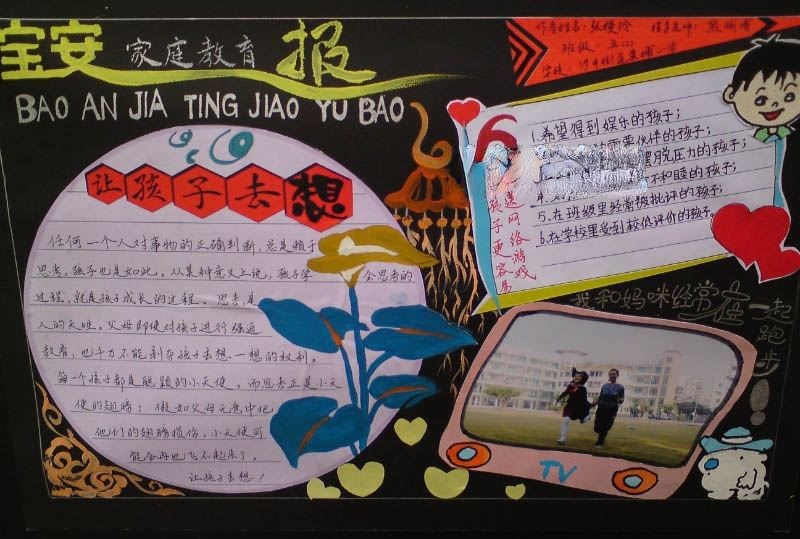 宝安家庭教育报
BAO AN JIA TING JIAO YU BAO
作者姓名:张
指导老师:
班级:五(2)
学校:沙井街道 小学
让孩子去想
任何一个人对事物的正确判断,总是赖于
思考,孩子也是如此。从某种意义上说,孩子学会思考的
过程,就是孩子成长的过程。思考是
人的天性。父母即使对孩子进行强迫
教育,也千万不能剥夺孩子去想一想的权利。
每一个孩子都是聪颖的小天使,而思考正是小天
使的翅膀;假如父母无意中把
他们的翅膀损伤,小天使可
能会再也飞不起来了。
让孩子去想!
6
孩子更容易
迷网络游戏
1.希望得到娱乐的孩子;
需要伙伴的孩子;
摆脱压力的孩子;
4. 不和睦的孩子;
5.在班级里经常被批评的孩子;
6.在学校里受到较低评价的孩子。
我和妈咪经常在一起
跑步!
TV